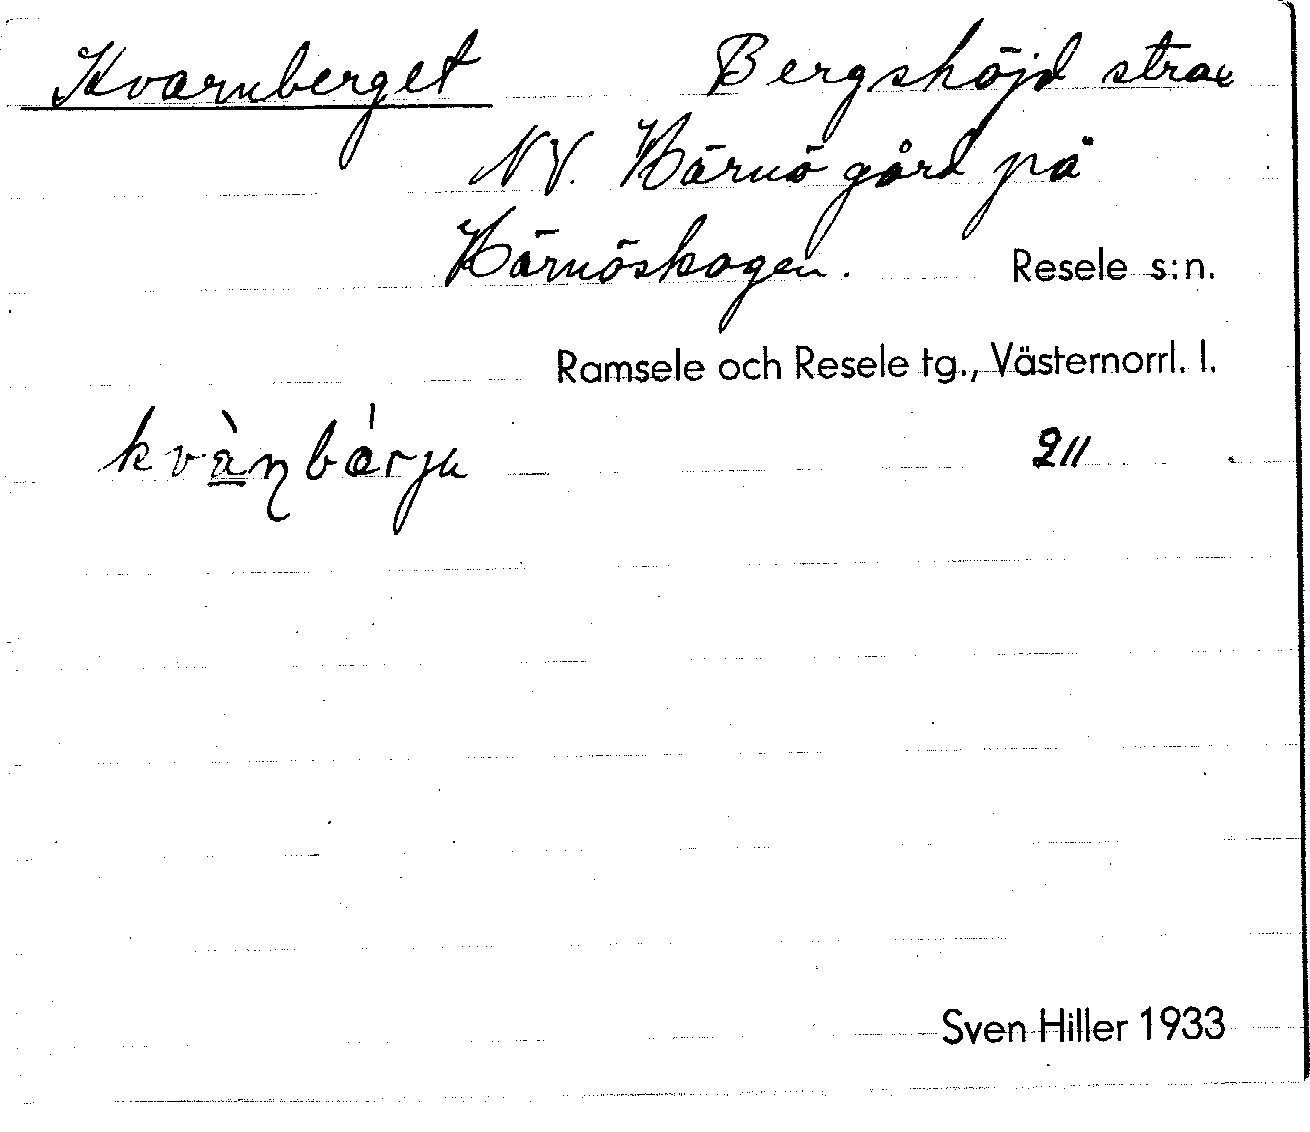 Kvarnberget Bergshöjd strax
NV. Härnö gård på
Härnöskogen. Resele s:n.
Ramsele och Resele tg., Västernorrl. l.
kvàɳbárju 211
Sven Hiller 1933